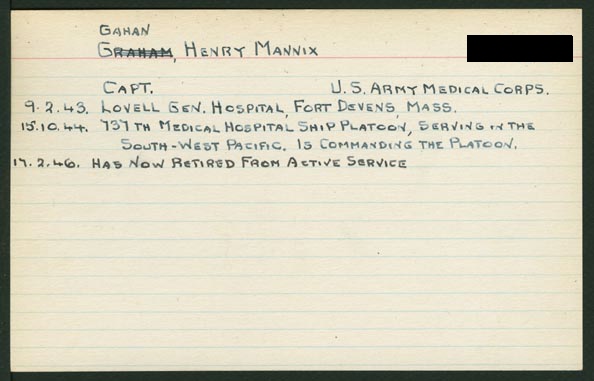 GAHAN
GRAHAM, HENRY MANNIX
CAPT. U.S. ARMY MEDICAL CORPS.
9.2.43. LOVELL GEN. HOSPITAL, FORT DEVENS, MASS.
15.10.44. 737TH MEDICAL HOSPITAL SHIP PLATOON, SERVING IN THE
SOUTH-WEST PACIFIC. IS COMMANDING THE PLATOON.
17.2.46. HAS NOW RETIRED FROM ACTIVE SERVICE